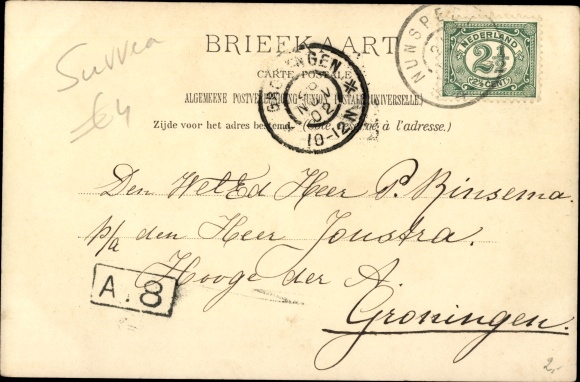 Suvvea
£4
BRIEFKAART
CARTE POSTALE
ALGEMEENE POSTVEREENIGING (UNION POSTALE UNIVERSELLE)
Zijde voor het adres bestemd. (Côté réservé à l'adresse.)
NUNSPE
NEDERLAND
2½
CENT
GRONINGEN
NOV
02
10-12
Den WelEd Heer P. Rinsema.
p/a den Heer Joustra.
Hooge der A.
Groningen.
A.8
2,-